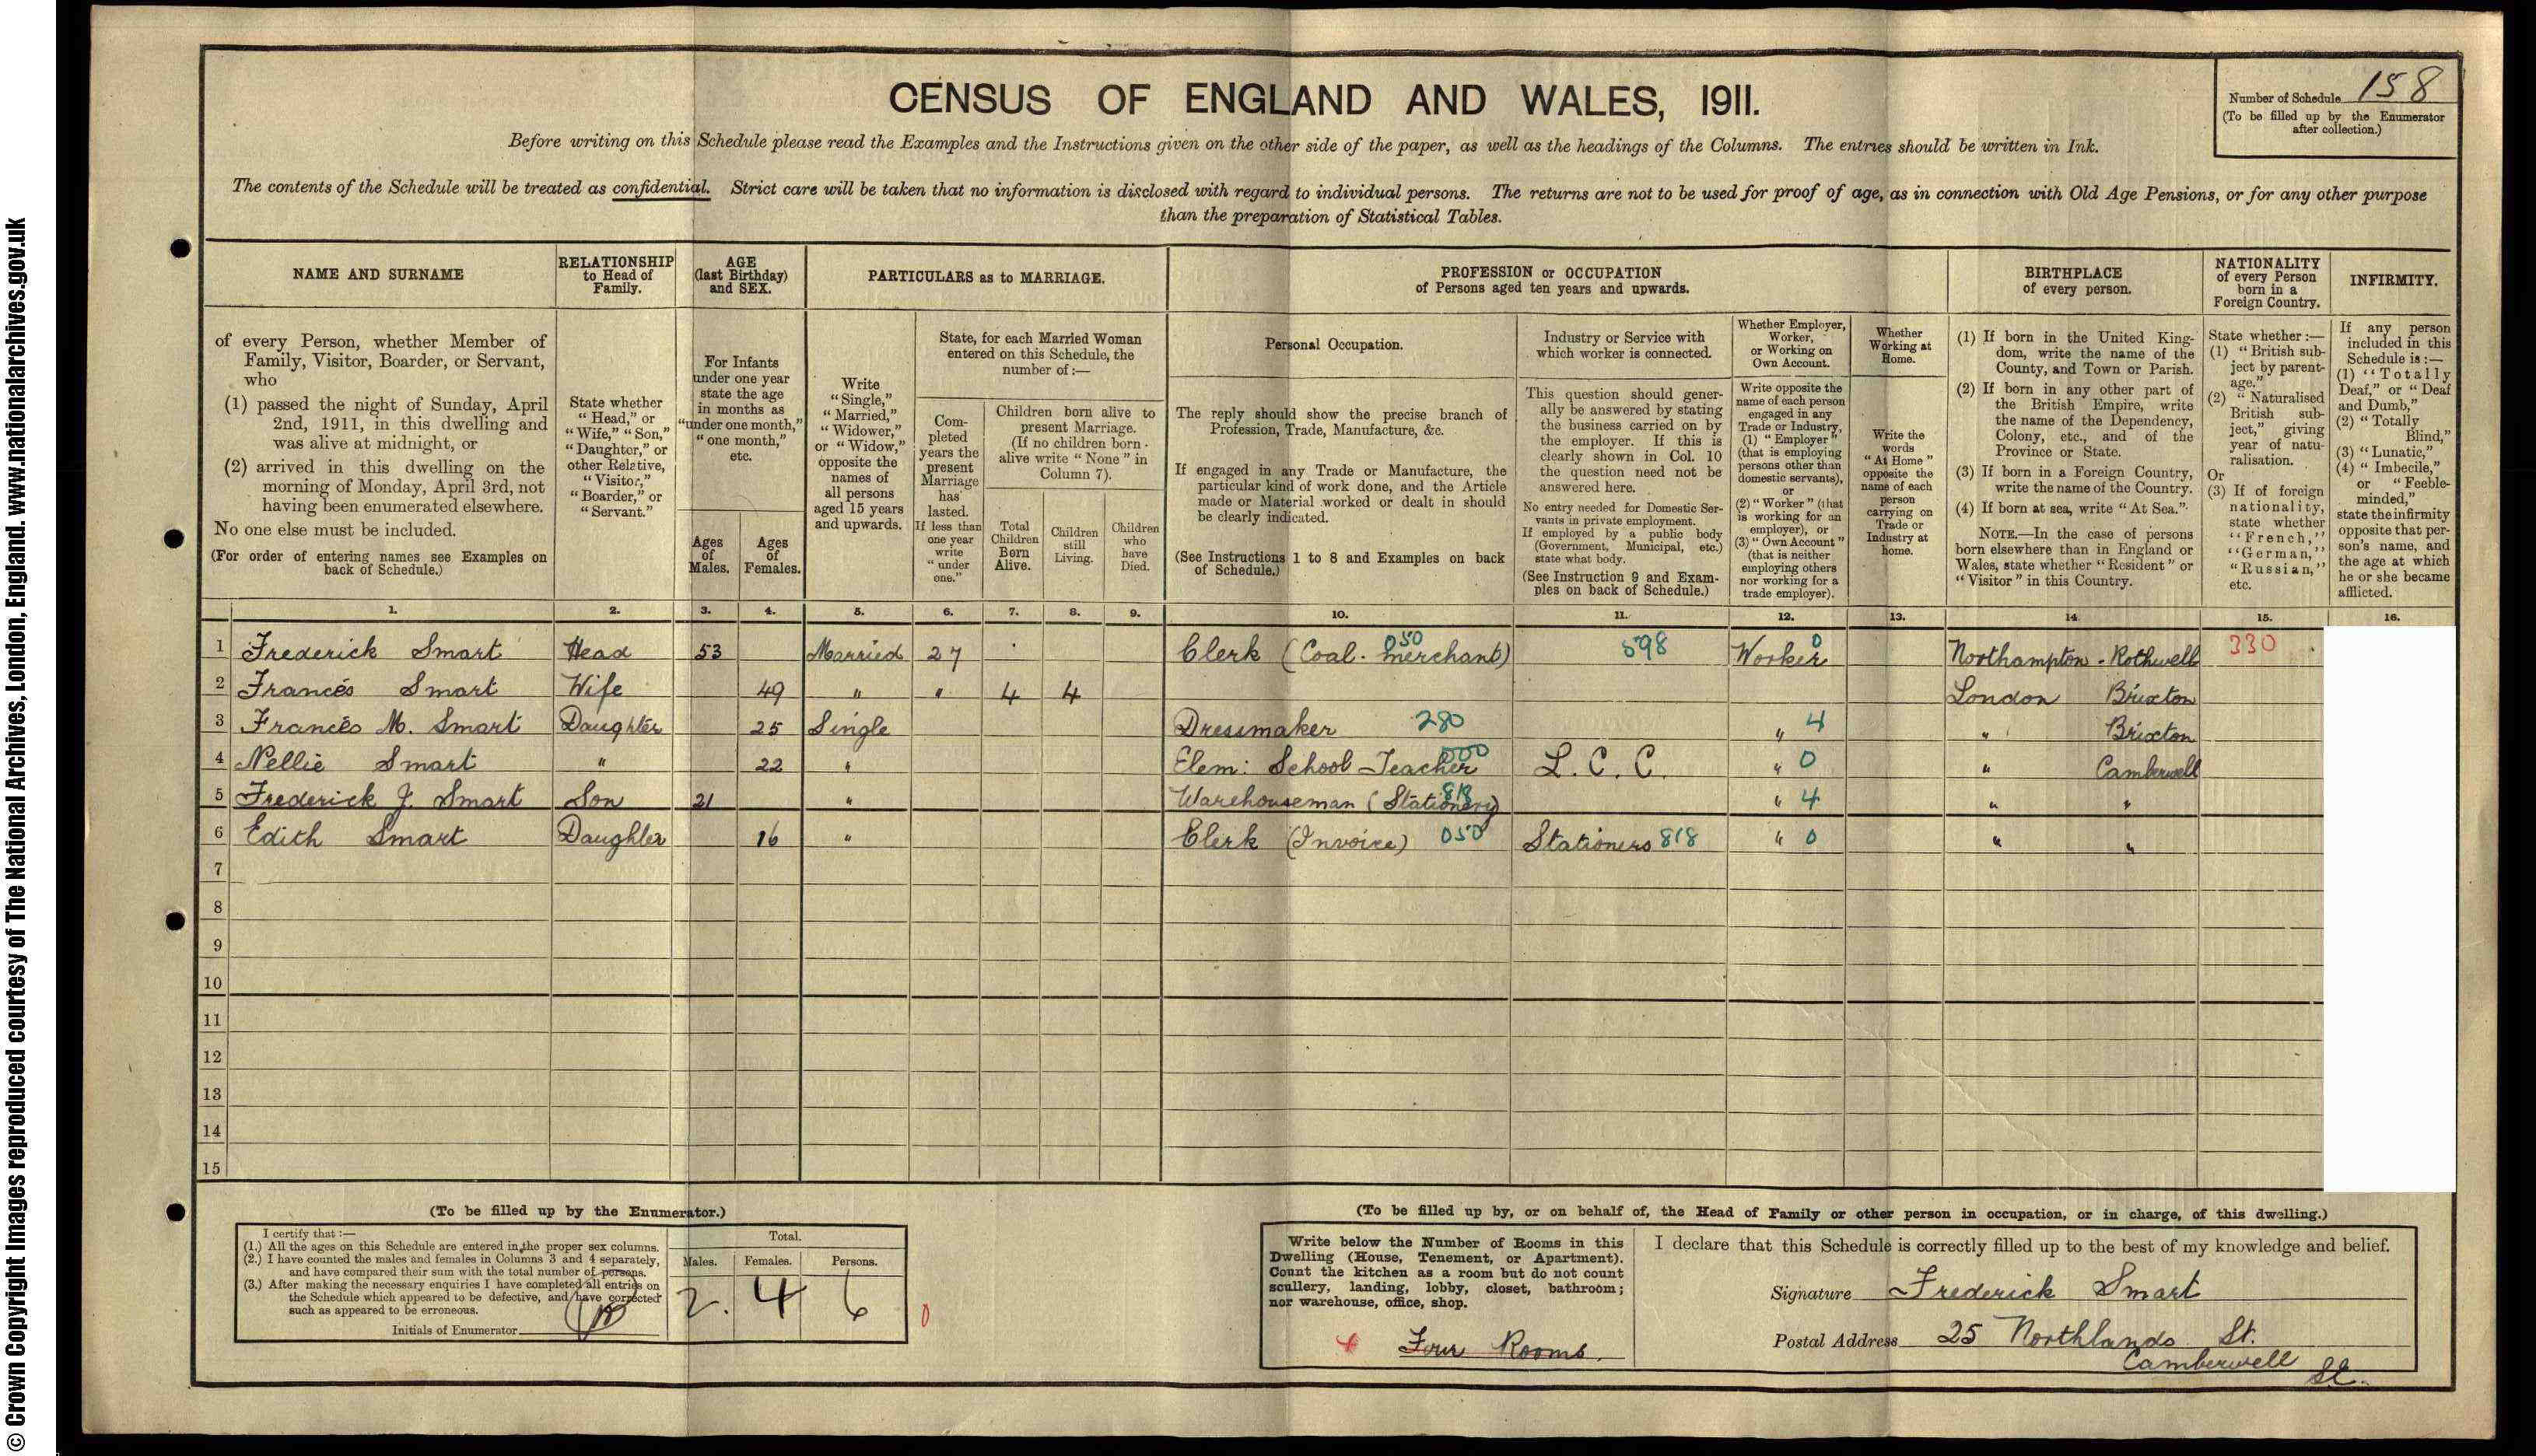 © Crown Copyright Images reproduced courtesy of The National Archives, London, England. www.nationalarchives.gov.uk
CENSUS OF ENGLAND AND WALES, 1911.
Number of Schedule 158
(To be filled up by the Enumerator
after collection.)
Before writing on this Schedule please read the Examples and the Instructions given on the other side of the paper, as well as the headings of the Columns. The entries should be written in Ink.
The contents of the Schedule will be treated as confidential. Strict care will be taken that no information is disclosed with regard to individual persons. The returns are not to be used for proof of age, as in connection with Old Age Pensions, or for any other purpose
than the preparation of Statistical Tables.
NAME AND SURNAME
RELATIONSHIP
to Head of
Family.
AGE
(last Birthday)
and SEX.
PARTICULARS as to MARRIAGE.
PROFESSION or OCCUPATION
of Persons aged ten years and upwards.
BIRTHPLACE
of every person.
NATIONALITY
of every Person
born in a
Foreign Country.
INFIRMITY.
of every Person, whether Member of
Family, Visitor, Boarder, or Servant,
who
(1) passed the night of Sunday, April
2nd, 1911, in this dwelling and
was alive at midnight, or
(2) arrived in this dwelling on the
morning of Monday, April 3rd, not
having been enumerated elsewhere.
No one else must be included.
(For order of entering names see Examples on
back of Schedule.)
State whether
"Head," or
"Wife," "Son,"
"Daughter," or
other Relative,
"Visitor,"
"Boarder," or
"Servant."
For Infants
under one year
state the age
in months as
"under one month,"
"one month,"
etc.
Ages
of
Males.
Ages
of
Females.
Write
"Single,"
"Married,"
"Widower,"
or "Widow,"
opposite the
names of
all persons
aged 15 years
and upwards.
State, for each Married Woman
entered on this Schedule, the
number of :—
Com-
pleted
years the
present
Marriage
has
lasted.
If less than
one year
write
"under
one."
Children born alive to
present Marriage.
(If no children born
alive write "None" in
Column 7).
Total
Children
Born
Alive.
Children
still
Living.
Children
who
have
Died.
Personal Occupation.
The reply should show the precise branch of
Profession, Trade, Manufacture, &c.
If engaged in any Trade or Manufacture, the
particular kind of work done, and the Article
made or Material worked or dealt in should
be clearly indicated.
(See Instructions 1 to 8 and Examples on back
of Schedule.)
Industry or Service with
which worker is connected.
This question should gener-
ally be answered by stating
the business carried on by
the employer. If this is
clearly shown in Col. 10
the question need not be
answered here.
No entry needed for Domestic Ser-
vants in private employment.
If employed by a public body
(Government, Municipal, etc.)
state what body.
(See Instruction 9 and Exam-
ples on back of Schedule.)
Whether Employer,
Worker,
or Working on
Own Account.
Write opposite the
name of each person
engaged in any
Trade or Industry,
(1) "Employer"
(that is employing
persons other than
domestic servants),
or
(2) "Worker" (that
is working for an
employer), or
(3) "Own Account"
(that is neither
employing others
nor working for a
trade employer).
Whether
Working at
Home.
Write the
words
"At Home"
opposite the
name of each
person
carrying on
Trade or
Industry at
home.
(1) If born in the United King-
dom, write the name of the
County, and Town or Parish.
(2) If born in any other part of
the British Empire, write
the name of the Dependency,
Colony, etc., and of the
Province or State.
(3) If born in a Foreign Country,
write the name of the Country.
(4) If born at sea, write "At Sea."
NOTE.—In the case of persons
born elsewhere than in England or
Wales, state whether "Resident" or
"Visitor" in this Country.
State whether :—
(1) "British sub-
ject by parent-
age."
(2) "Naturalised
British sub-
ject," giving
year of natu-
ralisation.
Or
(3) If of foreign
nationality,
state whether
"French,"
"German,"
"Russian,"
etc.
If any person
included in this
Schedule is :—
(1) "Totally
Deaf," or "Deaf
and Dumb,"
(2) "Totally
Blind,"
(3) "Lunatic,"
(4) "Imbecile,"
or "Feeble-
minded,"
state the infirmity
opposite that per-
son's name, and
the age at which
he or she became
afflicted.
1. 2. 3. 4. 5. 6. 7. 8. 9. 10. 11. 12. 13. 14. 15. 16.
1 Frederick Smart Head 53 Married 27 Clerk (Coal-Merchant) 050 598 Worker 0 Northampton - Rothwell 330
2 Frances Smart Wife 49 " " 4 4 London Brixton
3 Frances M. Smart Daughter 25 Single Dressmaker 280 " 4 " Brixton
4 Nellie Smart " 22 " Elem: School Teacher L.C.C. " 0 " Camberwell
5 Frederick J. Smart Son 21 " Warehouseman (Stationery) 818 " 4 " "
6 Edith Smart Daughter 16 " Clerk (Invoice) 050 Stationers 818 " 0 " "
7
8
9
10
11
12
13
14
15
(To be filled up by the Enumerator.)
I certify that :—
(1.) All the ages on this Schedule are entered in the proper sex columns.
(2.) I have counted the males and females in Columns 3 and 4 separately,
and have compared their sum with the total number of persons.
(3.) After making the necessary enquiries I have completed all entries on
the Schedule which appeared to be defective, and have corrected
such as appeared to be erroneous.
Initials of Enumerator
Total.
Males. Females. Persons.
2. 4 6
0
(To be filled up by, or on behalf of, the Head of Family or other person in occupation, or in charge, of this dwelling.)
Write below the Number of Rooms in this
Dwelling (House, Tenement, or Apartment).
Count the kitchen as a room but do not count
scullery, landing, lobby, closet, bathroom;
nor warehouse, office, shop.
4 Four Rooms.
I declare that this Schedule is correctly filled up to the best of my knowledge and belief.
Signature Frederick Smart
Postal Address 25 Northlands St.
Camberwell